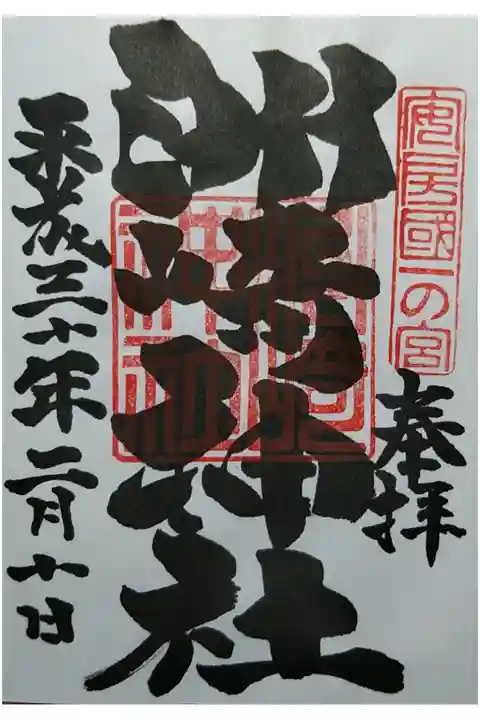 安房國一の宮
奉拝
洲崎神社
平成三十年二月十日